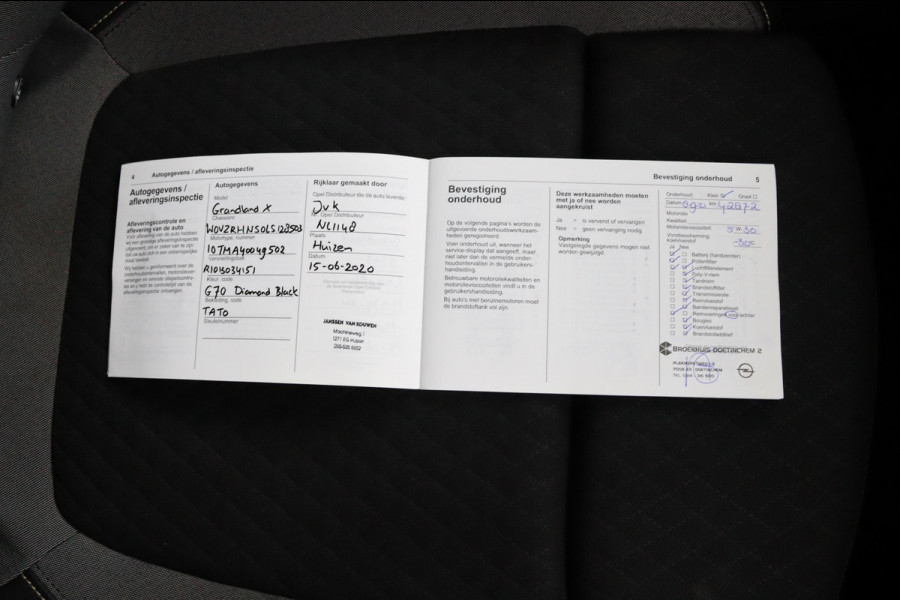 4 Autogegevens / afleveringsinspectie
Autogegevens /
afleveringsinspectie
Afleveringscontrole en
aflevering van de auto
Autogegevens
Model
Grandland X
Chassisnr.
Motortype, nummer
R101S034151
Kleur, code
G70 Diamond Black
Bekleding, code
TATO
Sleutelnummer
Rijklaar gemaakt door
Opel Distributeur die de auto leverde
JvK
Nr. Opel Distributeur
NL1148
Plaats
Huizen
Datum
15-06-2020
JANSSEN VAN KOUWEN
Machineweg 1
1271 EG Huizen
Bevestiging onderhoud 5
Bevestiging
onderhoud
Op de volgende pagina's worden de
uitgevoerde onderhoudswerkzaam-
heden geregistreerd.
Voer onderhoud uit, wanneer het
service-display dat aangeeft, maar
niet later dan de vermelde onder-
houdsintervallen in de gebruikers-
handleiding.
Betrouwbare motoroliekwaliteiten en
motorolieviscositeiten vindt u in de
gebruikershandleiding.
Bij auto's met benzinemotoren moet
de brandstoftank vol zijn.
Deze werkzaamheden moeten
met ja of nee worden
aangekruist
Ja = is ververst of vervangen
Nee = geen vervanging nodig
Opmerking
Vastgelegde gegevens mogen niet
worden gewijzigd.
Onderhoud: Klein Groot
Datum km 42872
Motorolie
Kwaliteit
Motorolieviscositeit 5 W 30
Vorstbescherming,
Koelvloeistof -30°
Ja Nee
Batterij (handzender)
Pollenfilter
Luchtfilterelement
Poly-V-riem
Tandriem
Brandstoffilter
Transmissieolie
Remvloeistof
Bandenreparatieset
Bougies
Koelvloeistof
Brandstofadditief
BROEKHUIS DOETINCHEM 2